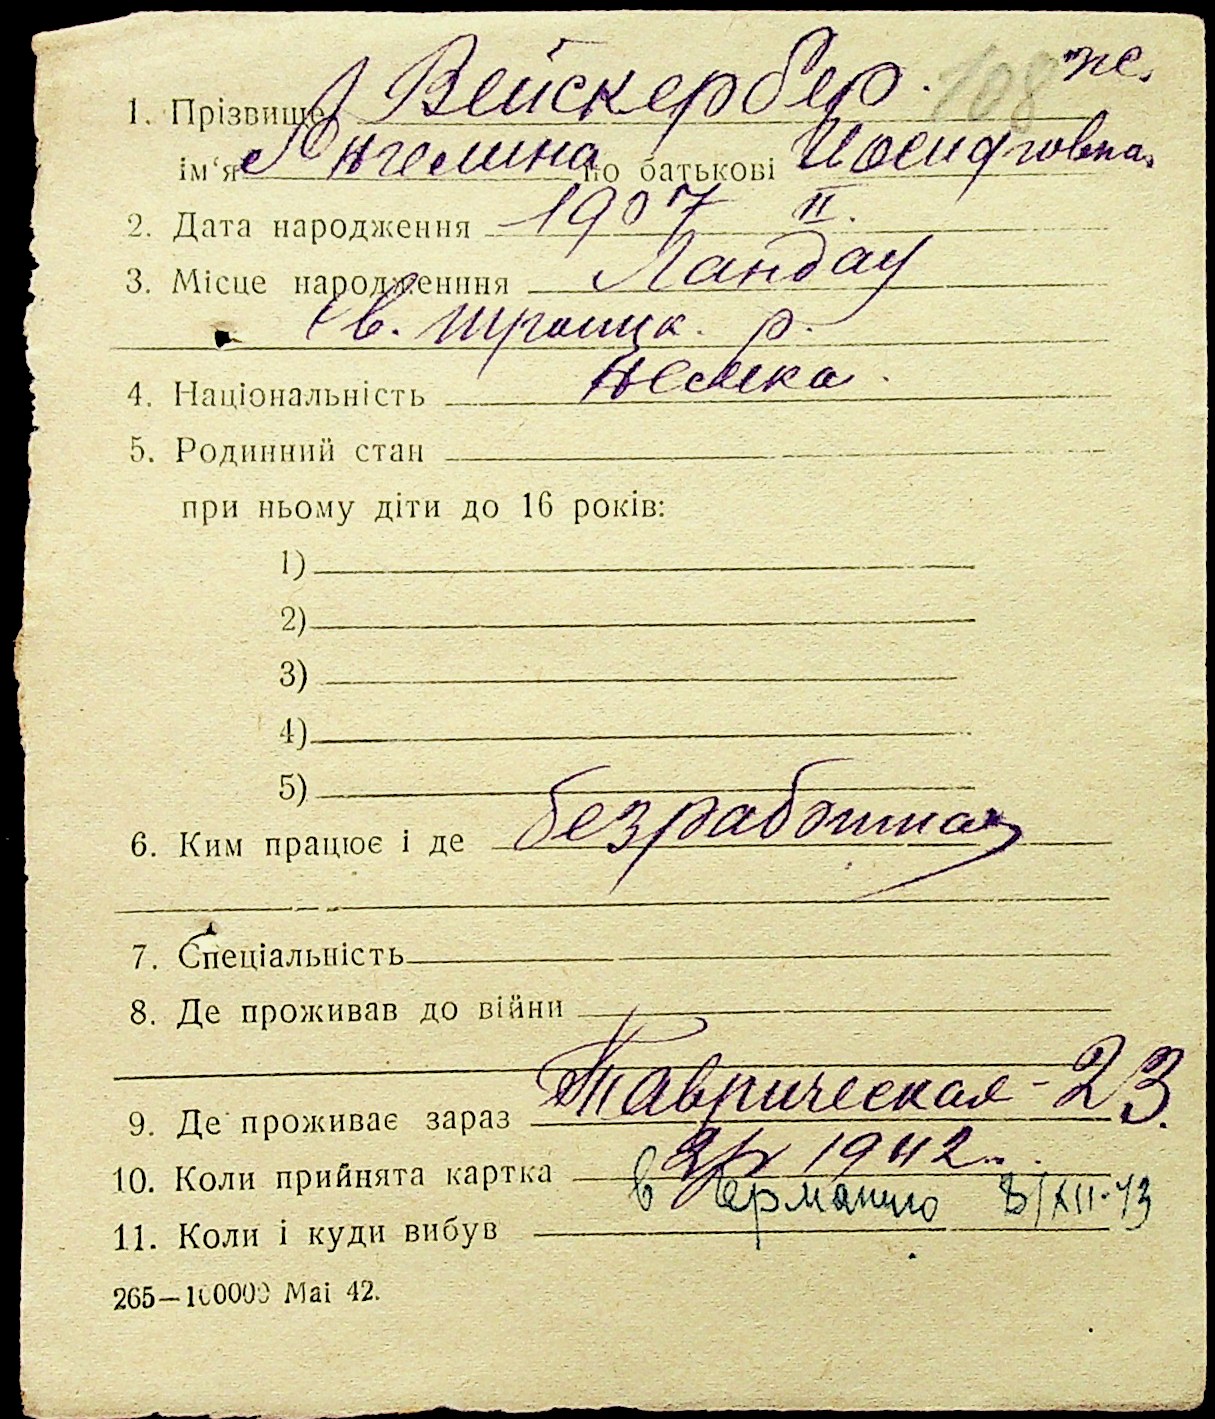 108 же.
1. Прізвище Вейскербер.
ім‘я Ангелина по батькові Иосифовна.
2. Дата народження 1907 II.
3. Місце народженння Ландау
Св. Троицк. р.
4. Національність немка.
5. Родинний стан
при ньому діти до 16 років:
1)
2)
3)
4)
5)
6. Ким працює і де безработная
7. Спеціальність
8. Де проживав до війни
9. Де проживає зараз Таврическая - 23.
10. Коли прийнята картка 1942
11. Коли і куди вибув в Германию /XII-43
265—100000 Mai 42.